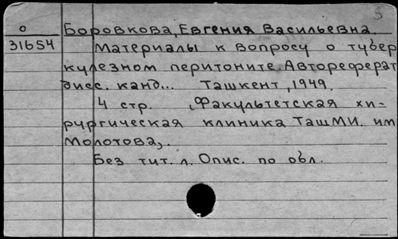 5
О Боровкова, Евгения Васильевна.
31654 Материалы к вопросу о тубер
кулезном перитоните. Автореферат
дисс. канд... Ташкент, 1949.
4 стр. (Факультетская хи-
рургическая клиника ТашМИ. им
Молотова).
Без тит. л. Опис. по обл.